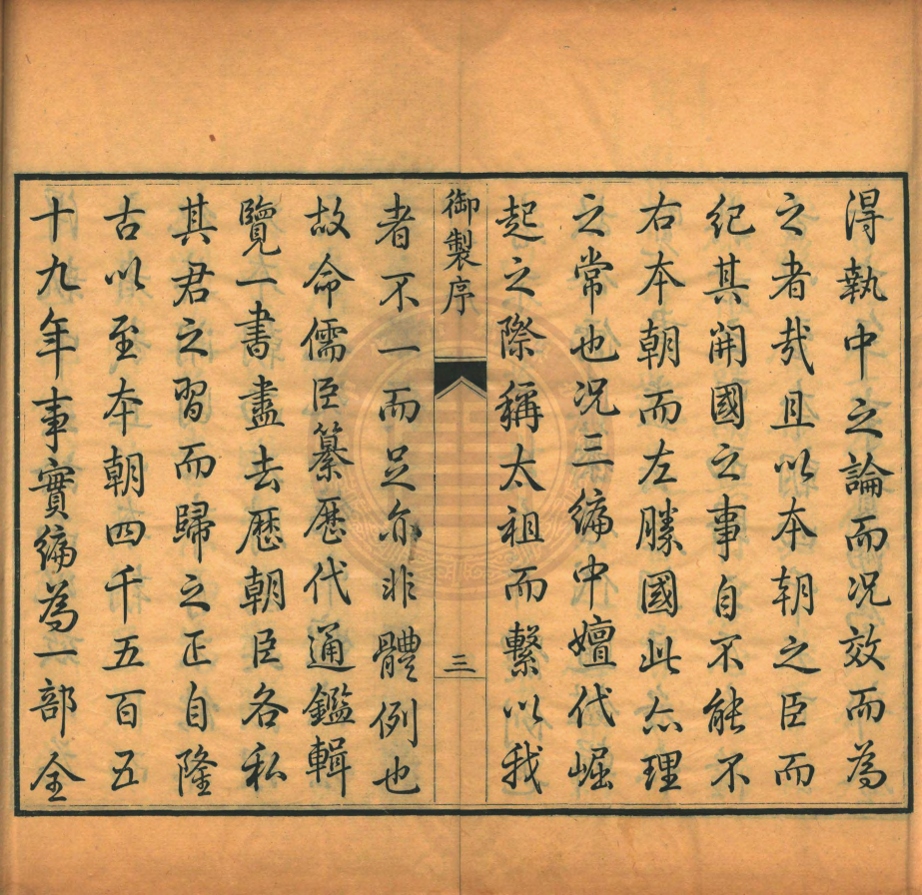 得執中之論而况效而為
之者㢤且以本朝之臣而
紀其開國之事自不能不
右本朝而左勝國此亦理
之常也况三編中嬗代崛
起之際稱太祖而繫以我
御製序
三
者不一而足亦非體例也
故命儒臣纂歷代通鑑輯
覽一書盡去歷朝臣各私
其君之習而歸之正自隆
古以至本朝四千五百五
十九年事實編為一部全